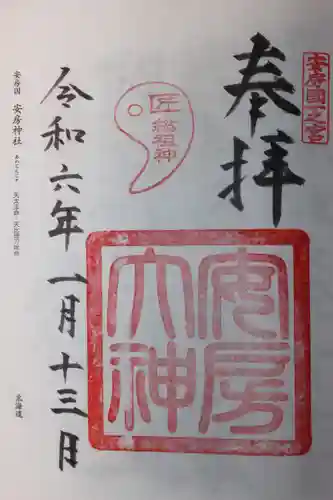 安房國一之宮
奉拝
匠総祖神
安房大神
令和六年一月十三日
安房国 安房神社
東海道